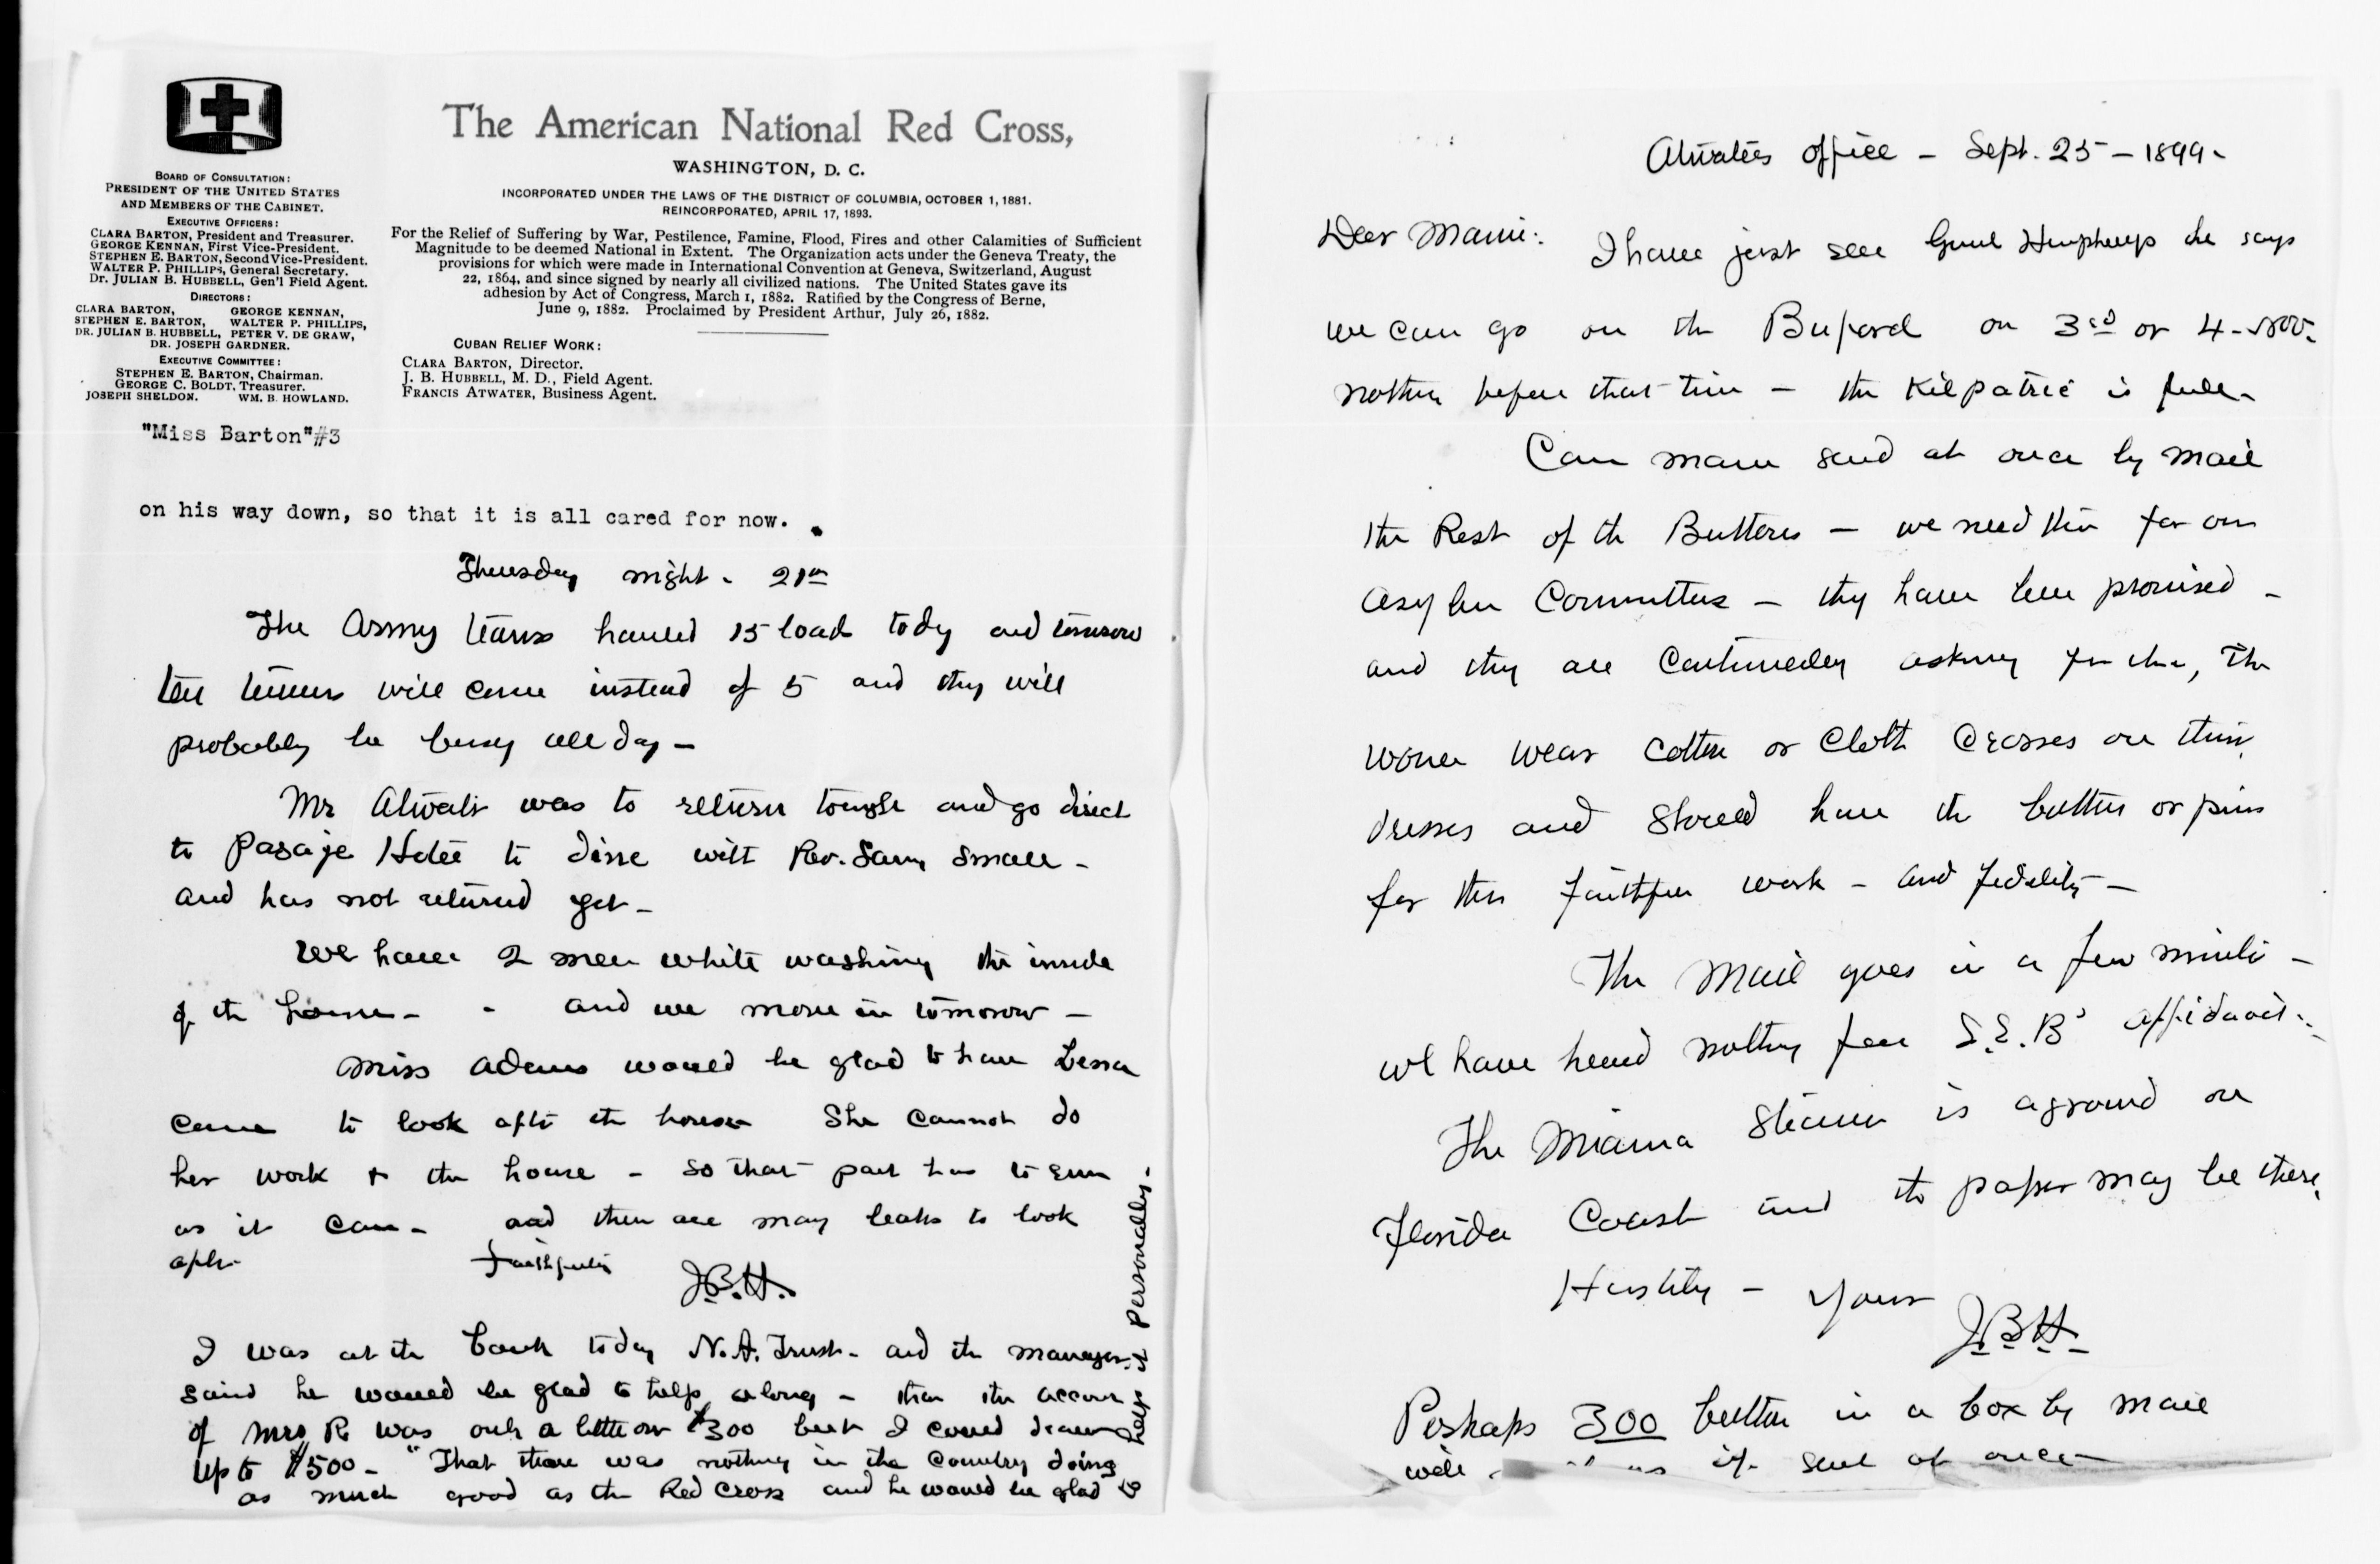 The American National Red Cross,
WASHINGTON, D. C.
INCORPORATED UNDER THE LAWS OF THE DISTRICT OF COLUMBIA, OCTOBER 1, 1881.
REINCORPORATED, APRIL 17, 1893.
For the Relief of Suffering by War, Pestilence, Famine, Flood, Fires and other Calamities of Sufficient
Magnitude to be deemed National in Extent. The Organization acts under the Geneva Treaty, the
provisions for which were made in International Convention at Geneva, Switzerland, August
22, 1864, and since signed by nearly all civilized nations. The United States gave its
adhesion by Act of Congress, March 1, 1882. Ratified by the Congress of Berne,
June 9, 1882. Proclaimed by President Arthur, July 26, 1882.
BOARD OF CONSULTATION:
PRESIDENT OF THE UNITED STATES
AND MEMBERS OF THE CABINET.
EXECUTIVE OFFICERS:
CLARA BARTON, President and Treasurer.
GEORGE KENNAN, First Vice-President.
STEPHEN E. BARTON, Second Vice-President.
WALTER P. PHILLIPS, General Secretary.
Dr. JULIAN B. HUBBELL, Gen'l Field Agent.
DIRECTORS:
CLARA BARTON, GEORGE KENNAN,
STEPHEN E. BARTON, WALTER P. PHILLIPS,
DR. JULIAN B. HUBBELL, PETER V. DE GRAW,
DR. JOSEPH GARDNER.
EXECUTIVE COMMITTEE:
STEPHEN E. BARTON, Chairman.
GEORGE C. BOLDT, Treasurer.
JOSEPH SHELDON. WM. B. HOWLAND.
CUBAN RELIEF WORK:
CLARA BARTON, Director.
J. B. HUBBELL, M. D., Field Agent.
FRANCIS ATWATER, Business Agent.
"Miss Barton"#3
on his way down, so that it is all cared for now.
Thursday night - 21st
The Army teams hauled 15 loads today and tomorrow
ten teams will come instead of 5 and they will
probably be busy all day -
Mr Atwater was to return tonight and go direct
to Pasaje Hotel to dine with Rev. Sam Small -
and has not returned yet -
We have 2 men white washing the inside
of the house - - and we move in tomorrow -
Miss Adams would be glad to have Lessa
come to look after the house She cannot do
her work & the house - so that part has to run
as it can - and there are many leaks to look
after
Faithfully
J.B.H.
I was at the bank today N.A. Trust - and the manager
said he would be glad to help along - then the account
of Mrs R was only a little over $300 but I could draw
up to $500 - "That there was nothing in the Country doing
as much good as the Red Cross and he would be glad
to help it personally.
Atwaters office - Sept. 25 - 1899 -
Dear Mamie: I have just seen Genl Humphreys he says
we can go on the Buford on 3rd or 4
nothing before that time - the Kilpatric is full -
Can mam send at once by mail
the Rest of the Buttons - we need them for our
asylum Committees - they have been promised -
and they are continually asking for them, The
women wear cotton or cloth crosses on their
dresses and should have the buttons or pins
for their faithful work - and fidelity -
The mail goes in a few minutes -
we have heard nothing from S.E.B's affidavit -
The Miama Steamer is aground on
Florida Coast and the papers may be there.
Hastily - yours
J.B.H.
Perhaps 300 buttons in a box by mail
will if sent at once